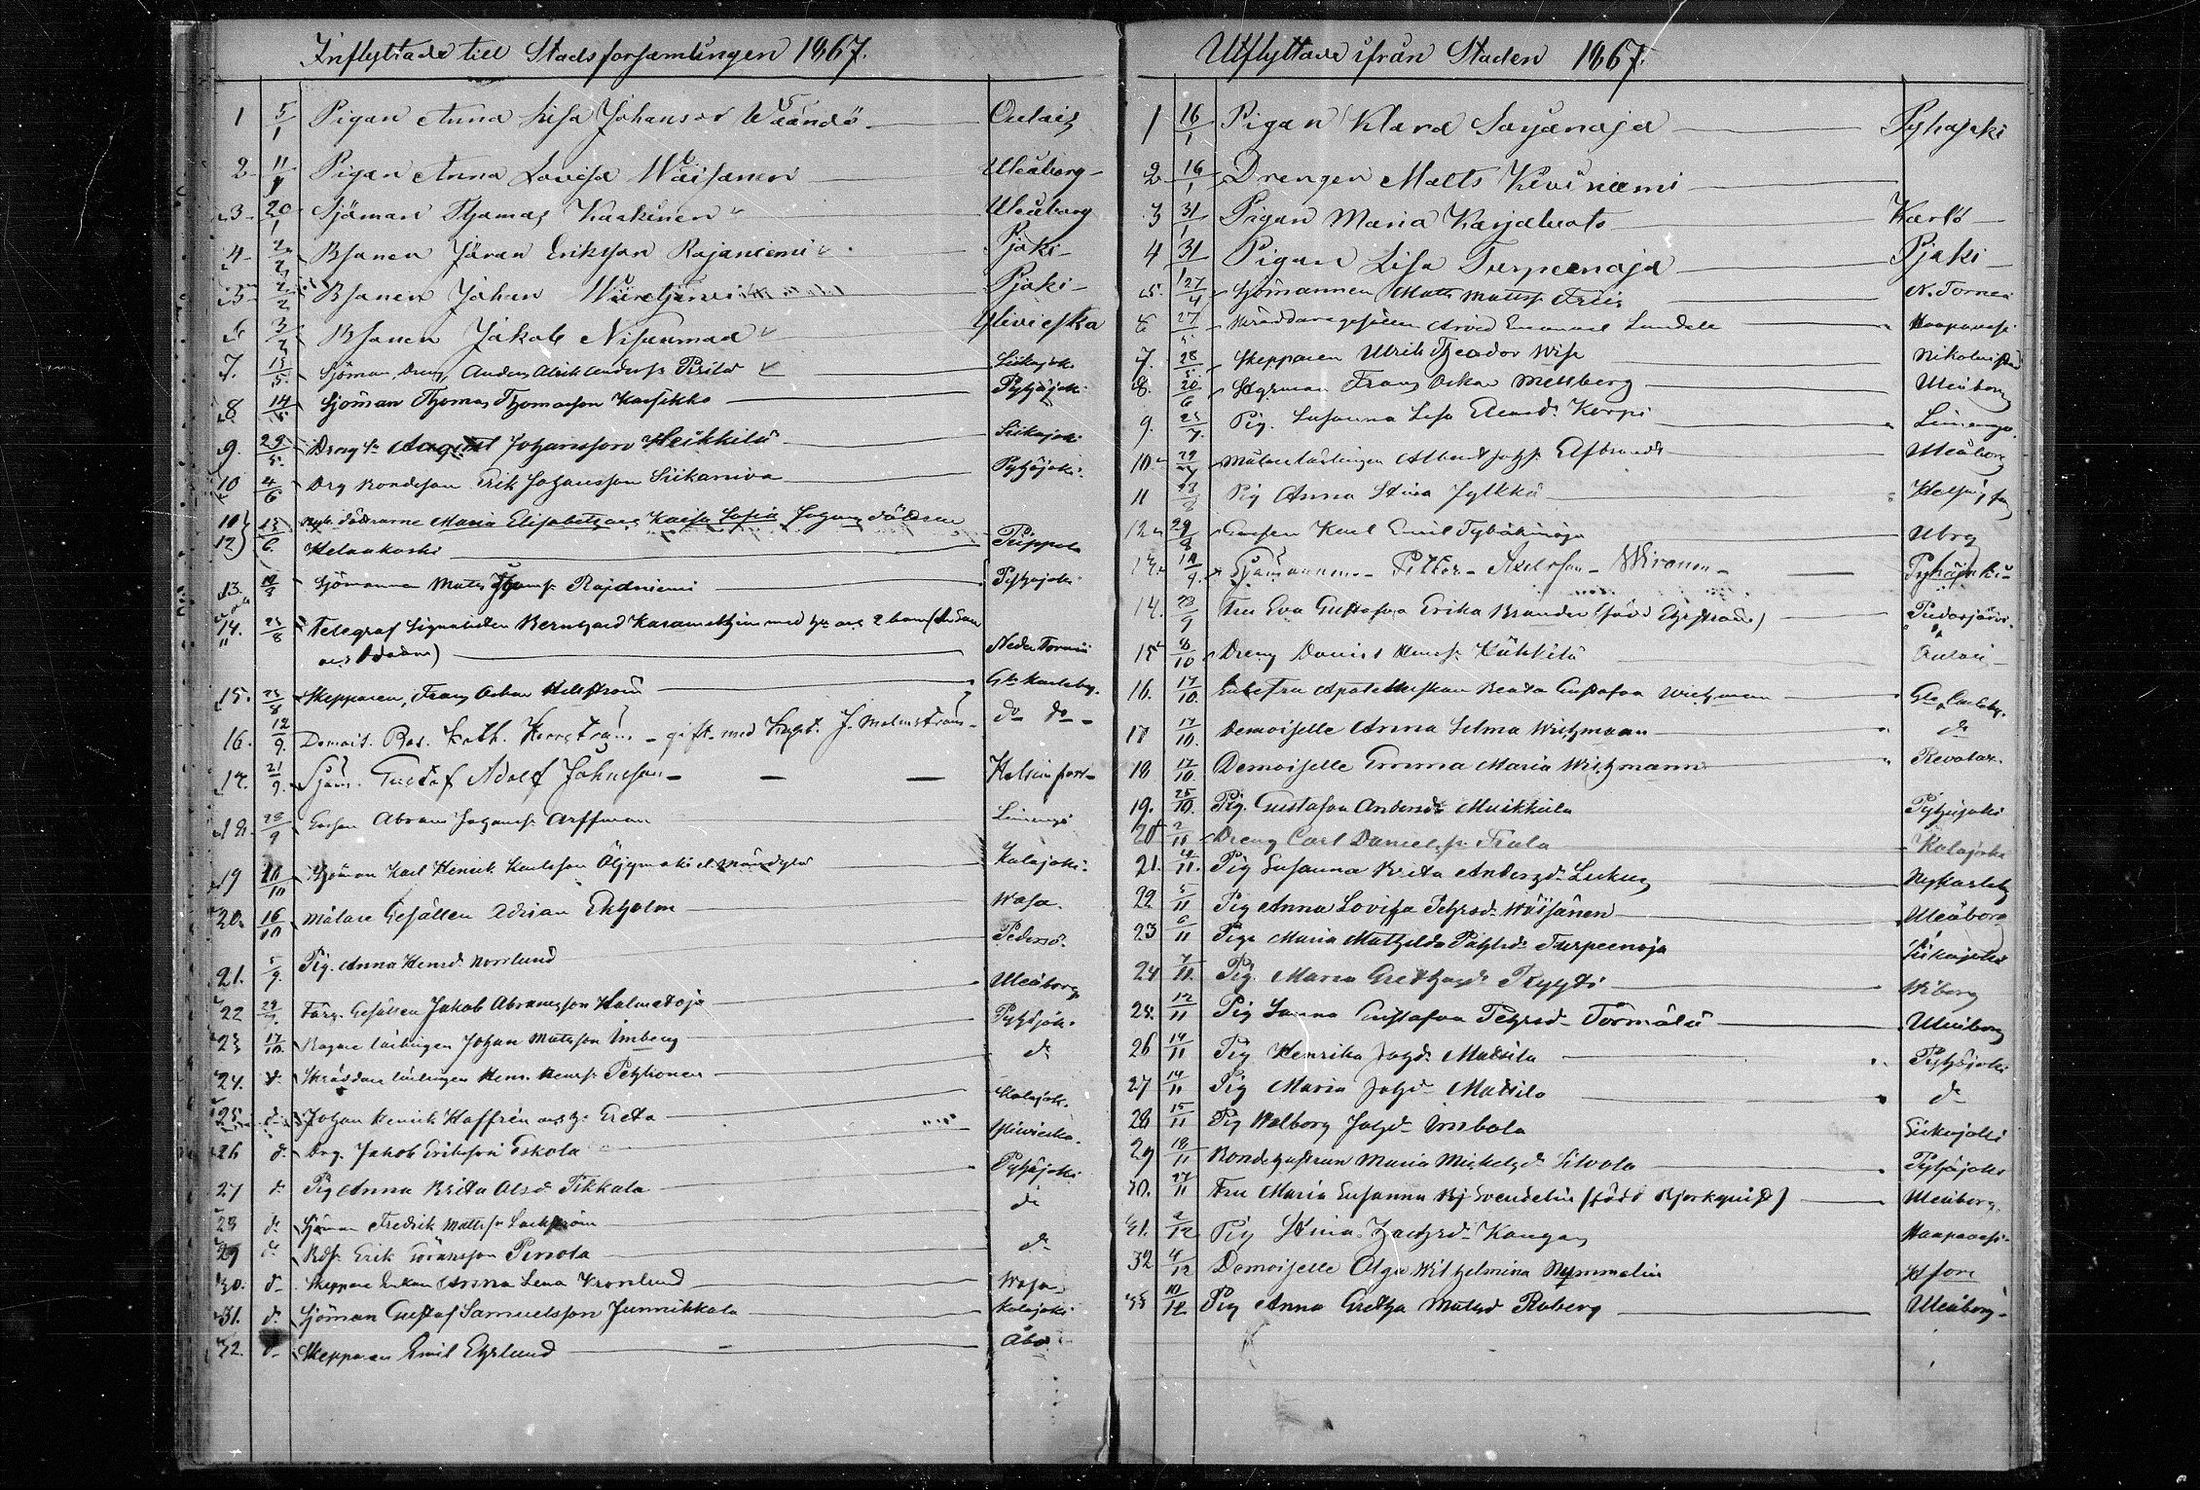 Inflyttade till Stadsforsamlingen 1867.
1 5/1 Pigan Anna Lisa Johansdr Oulais
2 11/1 Pigan Anna Lovisa Wäisänen Uleåborg
3 20/1 Sjöman Thomas Kaakinen Uleåborg
4 2/2 Bsonen Jöran Eriksson Rajaniemi Pjoki
5 2/2 Bsonen Johan Pjoki
6 3/ Bsonen Jakob Ylivieska
7. 13/5. Sjöman Dreng Anders Siikajok.
8 14/5 Sjöman Thomas Thomasson Karsikko Pyhäjoki
9. 29/5. Dreng August Johansson Heikkilä Siikajoki
10 4/6 Drg Bondeson Erik Johansson Siikaniva Pyhäjoki.
11 12 13/6. döttrarne Maria Elisabeth och Kaisa Sofia
Helaakoski Piippola
13. Sjömannen Matts Rajaniemi Pyhäjoki
14. 25/8 Telegraf Signalisten Bernhard med hu och 2 barn
Neder Torneå
15. 25/8 Skepparen, Frans Oskar Hellström Gla Karleby.
16. 12/9. Demois. Ros. Kath. gift med Kapt. J. Malmström do do
17. 21/9. Sjöm. Gustaf Adolf Johnsson Helsinfors
18. 28/9 Abram Johanss. Arffman Limingo
19 /10 Sjöman Karl Henrik Karlsson Kalajoki.
20. 16/10 Målare Gesällen Adrian Ekholm Wasa.
21. 5/9. Pig. Anna Henrd. Norrlund Pedersö.
22 Färg. Gesällen Jakob Abramsson Halmetoja Uleåborg
23 17/10. Garfvare lärlingen Johan Matsson Imberg Pyhäjok.
24. do Skräddare lärlingen Henr. Henrs. Petthonen do
25 do Johan Henrik Haffrén och h. Greta Kalajok.
26 do Drg. Jakob Eriksson Eskola Ylivieska.
27 do Pig Anna Brita Tikkala Pyhäjoki
28 do Sjöman Fredrik Mattss. Lackström do
29 do Bds. Erik Göransson Pirnola do
30. do Skeppare Enkan Anna Lena Kronlund Wasa
31. do Sjöman Gustaf Samuelsson Junnikkala Kalajoki
32. do Skepparen Emil Ehrlund Åbo
Utflyttade ifrån Staden 1867.
1 16/1 Pigan Klara Pyhajoki
2 16/1 Drengen Matts Kiviniemi
3 31/1 Pigan Maria Karjaluoto Karlö
4 31/1 Pigan Lisa Turpeenoja Pjoki
5. 27/4 Sjömannen Matts Mattss. Friis N. Torneå
6 27/5. Skräddaregesällen Arvid Emanuel Lundell Haapavesi
7. 28/5. Skepparen Ulrik Theodor Wiss Nikolaistad
8. 20/6 Styrman Frans Oskar Mellberg Uleåborg
9. 25/7. Pig. Susanna Lisa Korpi Limingo.
10. 29/7 Målarelärlingen Albert Johss. Elfbrandt Uleåborg
11 Pig Anna Stina Jylkkä Helsingfors
12 29/8 Karl Emil Ubrg
13. 10/9. Sjömannen Petter Axelsson Wironen Pyhäjoki
14. 23/9 Fru Eva Gustafva Erika Brander Pudasjärvi.
15 8/10 Dreng Daniel Henrs. Oulais
16. 17/10. Enkefru Apothekskan Beata Gustafva Wichmann Gla Carleby.
17 17/10. Demoiselle Anna Selma Wichmann do
18 17/10. Demoiselle Emma Maria Wichmann Revolax.
19. 25/10. Pig. Gustafva Andersdr Muikkula Pyhäjoki
20 2/11 Dreng Carl Danielss. Trula Kalajoki
21. 4/11. Pig Susanna Brita Andersd. Nykarleby
22 5/11 Pig Anna Lovisa Wäisänen Uleåborg
23 6/11 Piga Maria Mathilda Turpeenoja Siikajoki
24 7/11. Pig. Maria Wiborg
25. 12/11 Pig Sanna Gustafva Petersd. Törmälä Uleåborg
26 14/11 Pig Henrika Johd. Matsila Pyhäjoki
27 14/11 Pig Maria Johd Matsila do
28 15/11 Pig Walborg Johd Siikajoki
29 18/11 Bondehustrun Maria Mickelsd. Silvola Pyhäjoki
30. 27/11 Fru Maria Susanna Svendelin (född Bjorkquist) Uleåborg.
31. 2/12 Pig Stina Kangas Haapavesi
32 4/12 Demoiselle Olga Wilhelmina Nymmelin Hfors
33 10/12 Pig Anna Gretha Matsd Roberg Uleåborg